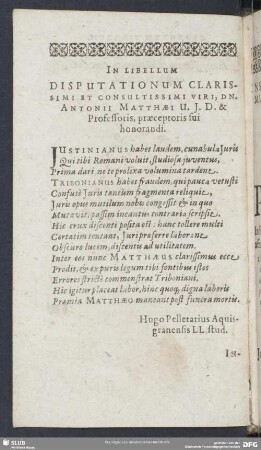 IN LIBELLUM
DISPUTATIONUM CLARIS-
SIMI ET CONSULTISSIMI VIRI, DN.
ANTONII MATTHÆI U. J. D. &
Professoris, præceptoris sui
honorandi.
JUSTINIANUS habet laudem, cunabula Juris
Qui tibi Romani voluit, studiosa juventus,
Prima dari ne te prolixa volumina tardent.
TRIBONIANUS habet fraudem, qui pauca vetusti
Consuit Juris tantùm fragmenta reliquit,
Juris opus mutilum nobis congessit & in quo
Mutavit, passim incautus contraria scripsit.
Hic crux discenti posita est: hanc tollere multi
Certatim tentant, Juri proferre laborant
Obscuro lucem, discentis ad utilitatem.
Inter eos nunc MATTHÆUS clarissimus ecce
Prodit, & ex puris legum tibi fontibus istos
Errores strictè commonstrat Triboniani.
Hic igitur placeat labor, hinc quoq; digna laboris
Præmia MATTHÆO maneant post funera mortis.
Hugo Pelletarius Aquis-
granensis LL. stud.
SLUB